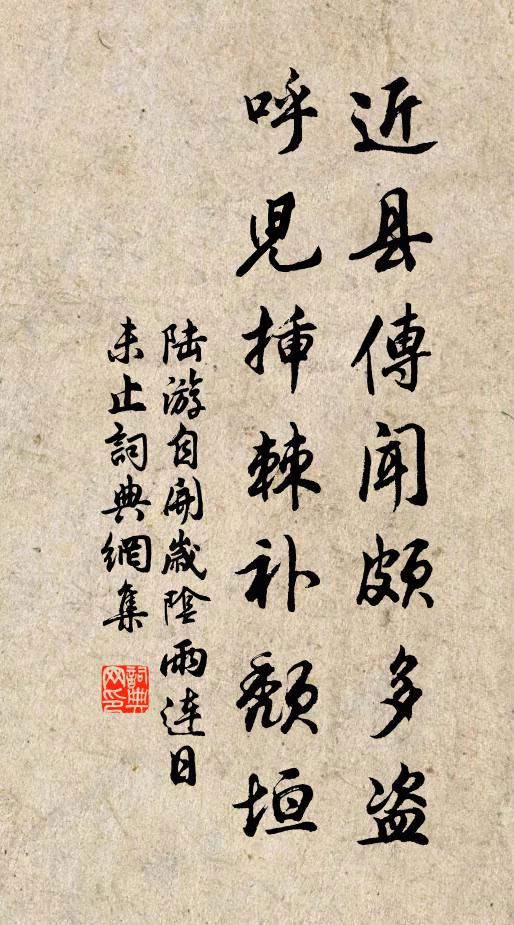 近县傳闻頗多盗
呼児挿棘补颓垣
陆游自開歳陰雨连日
未止詞典網集
詞典网印